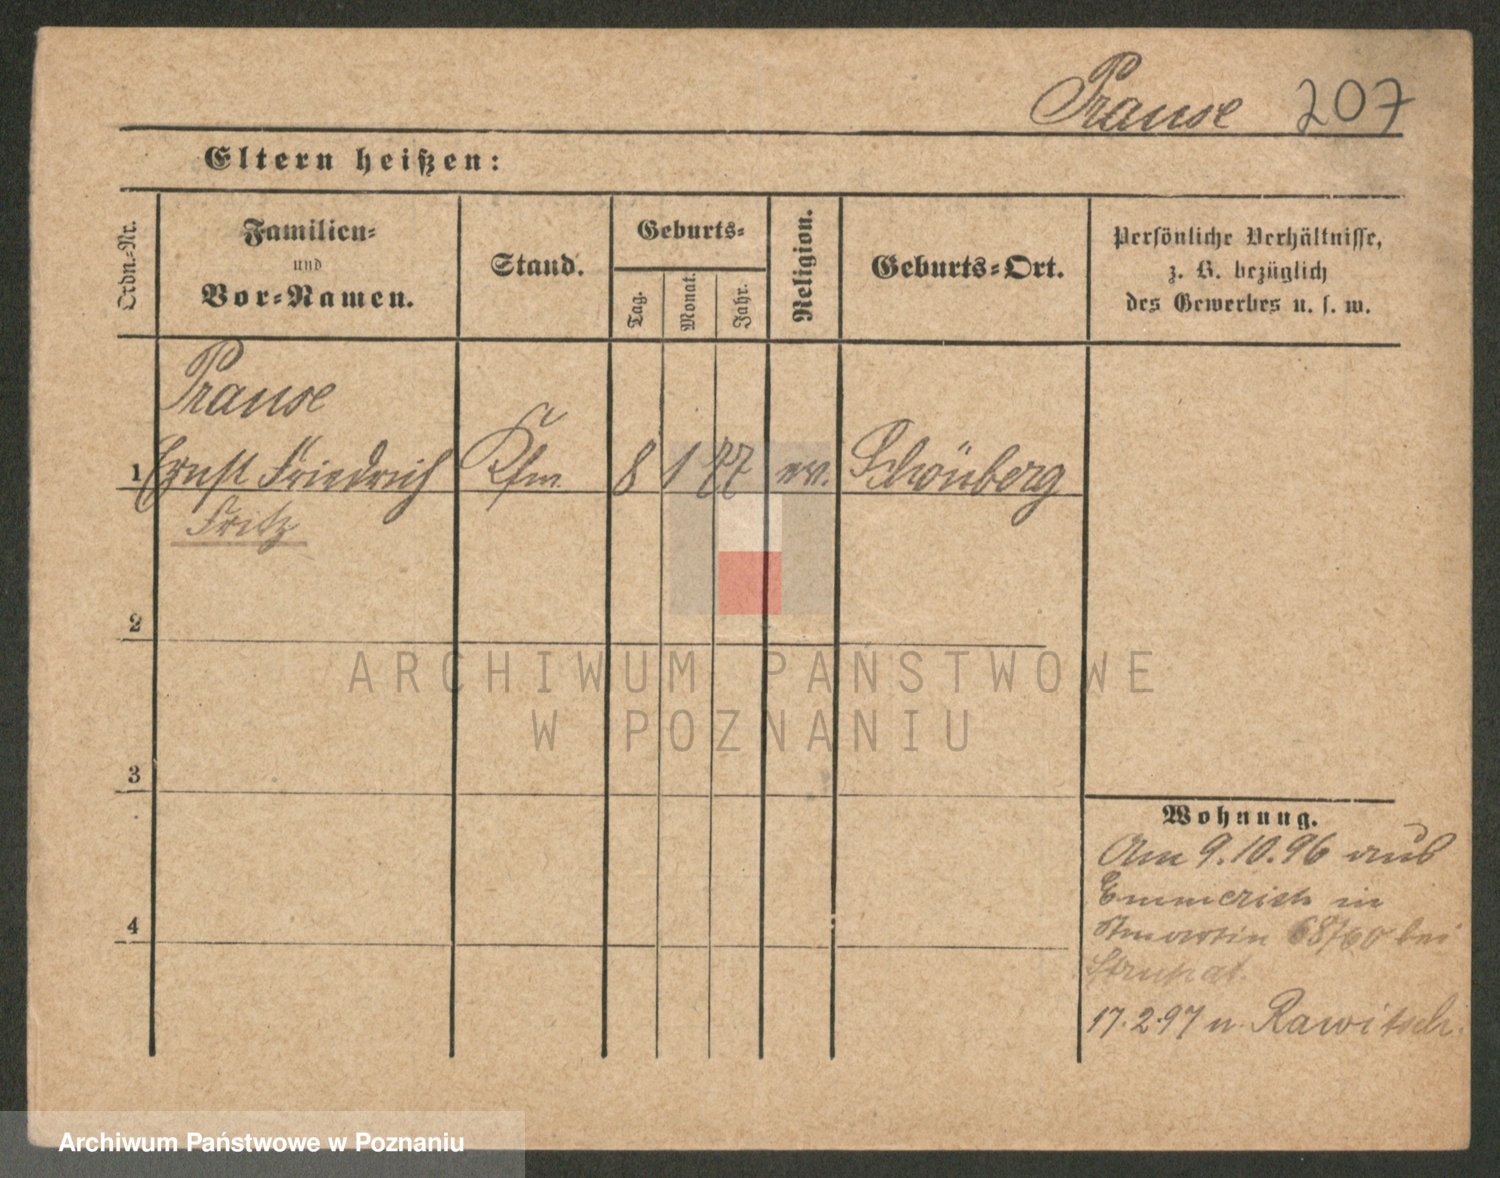 Prause 207
Eltern heißen:
Ordn.-Nr.
Familien-
und
Vor-Namen.
Stand.
Geburts-
Tag.
Monat.
Jahr.
Religion.
Geburts-Ort.
Persönliche Verhältnisse,
z. B. bezüglich
des Gewerbes u. s. w.
Prause
1 Ernst Friedrich Kfm. 8 1 77 ev. Schönberg
Fritz
2
ARCHIWUM PAŃSTWOWE
W POZNANIU
3
Wohnung.
Am 9.10.96 aus
Emmerich in
Stmartin 68/60 bei
4
17.2.97 n. Rawitsch.
Archiwum Państwowe w Poznaniu